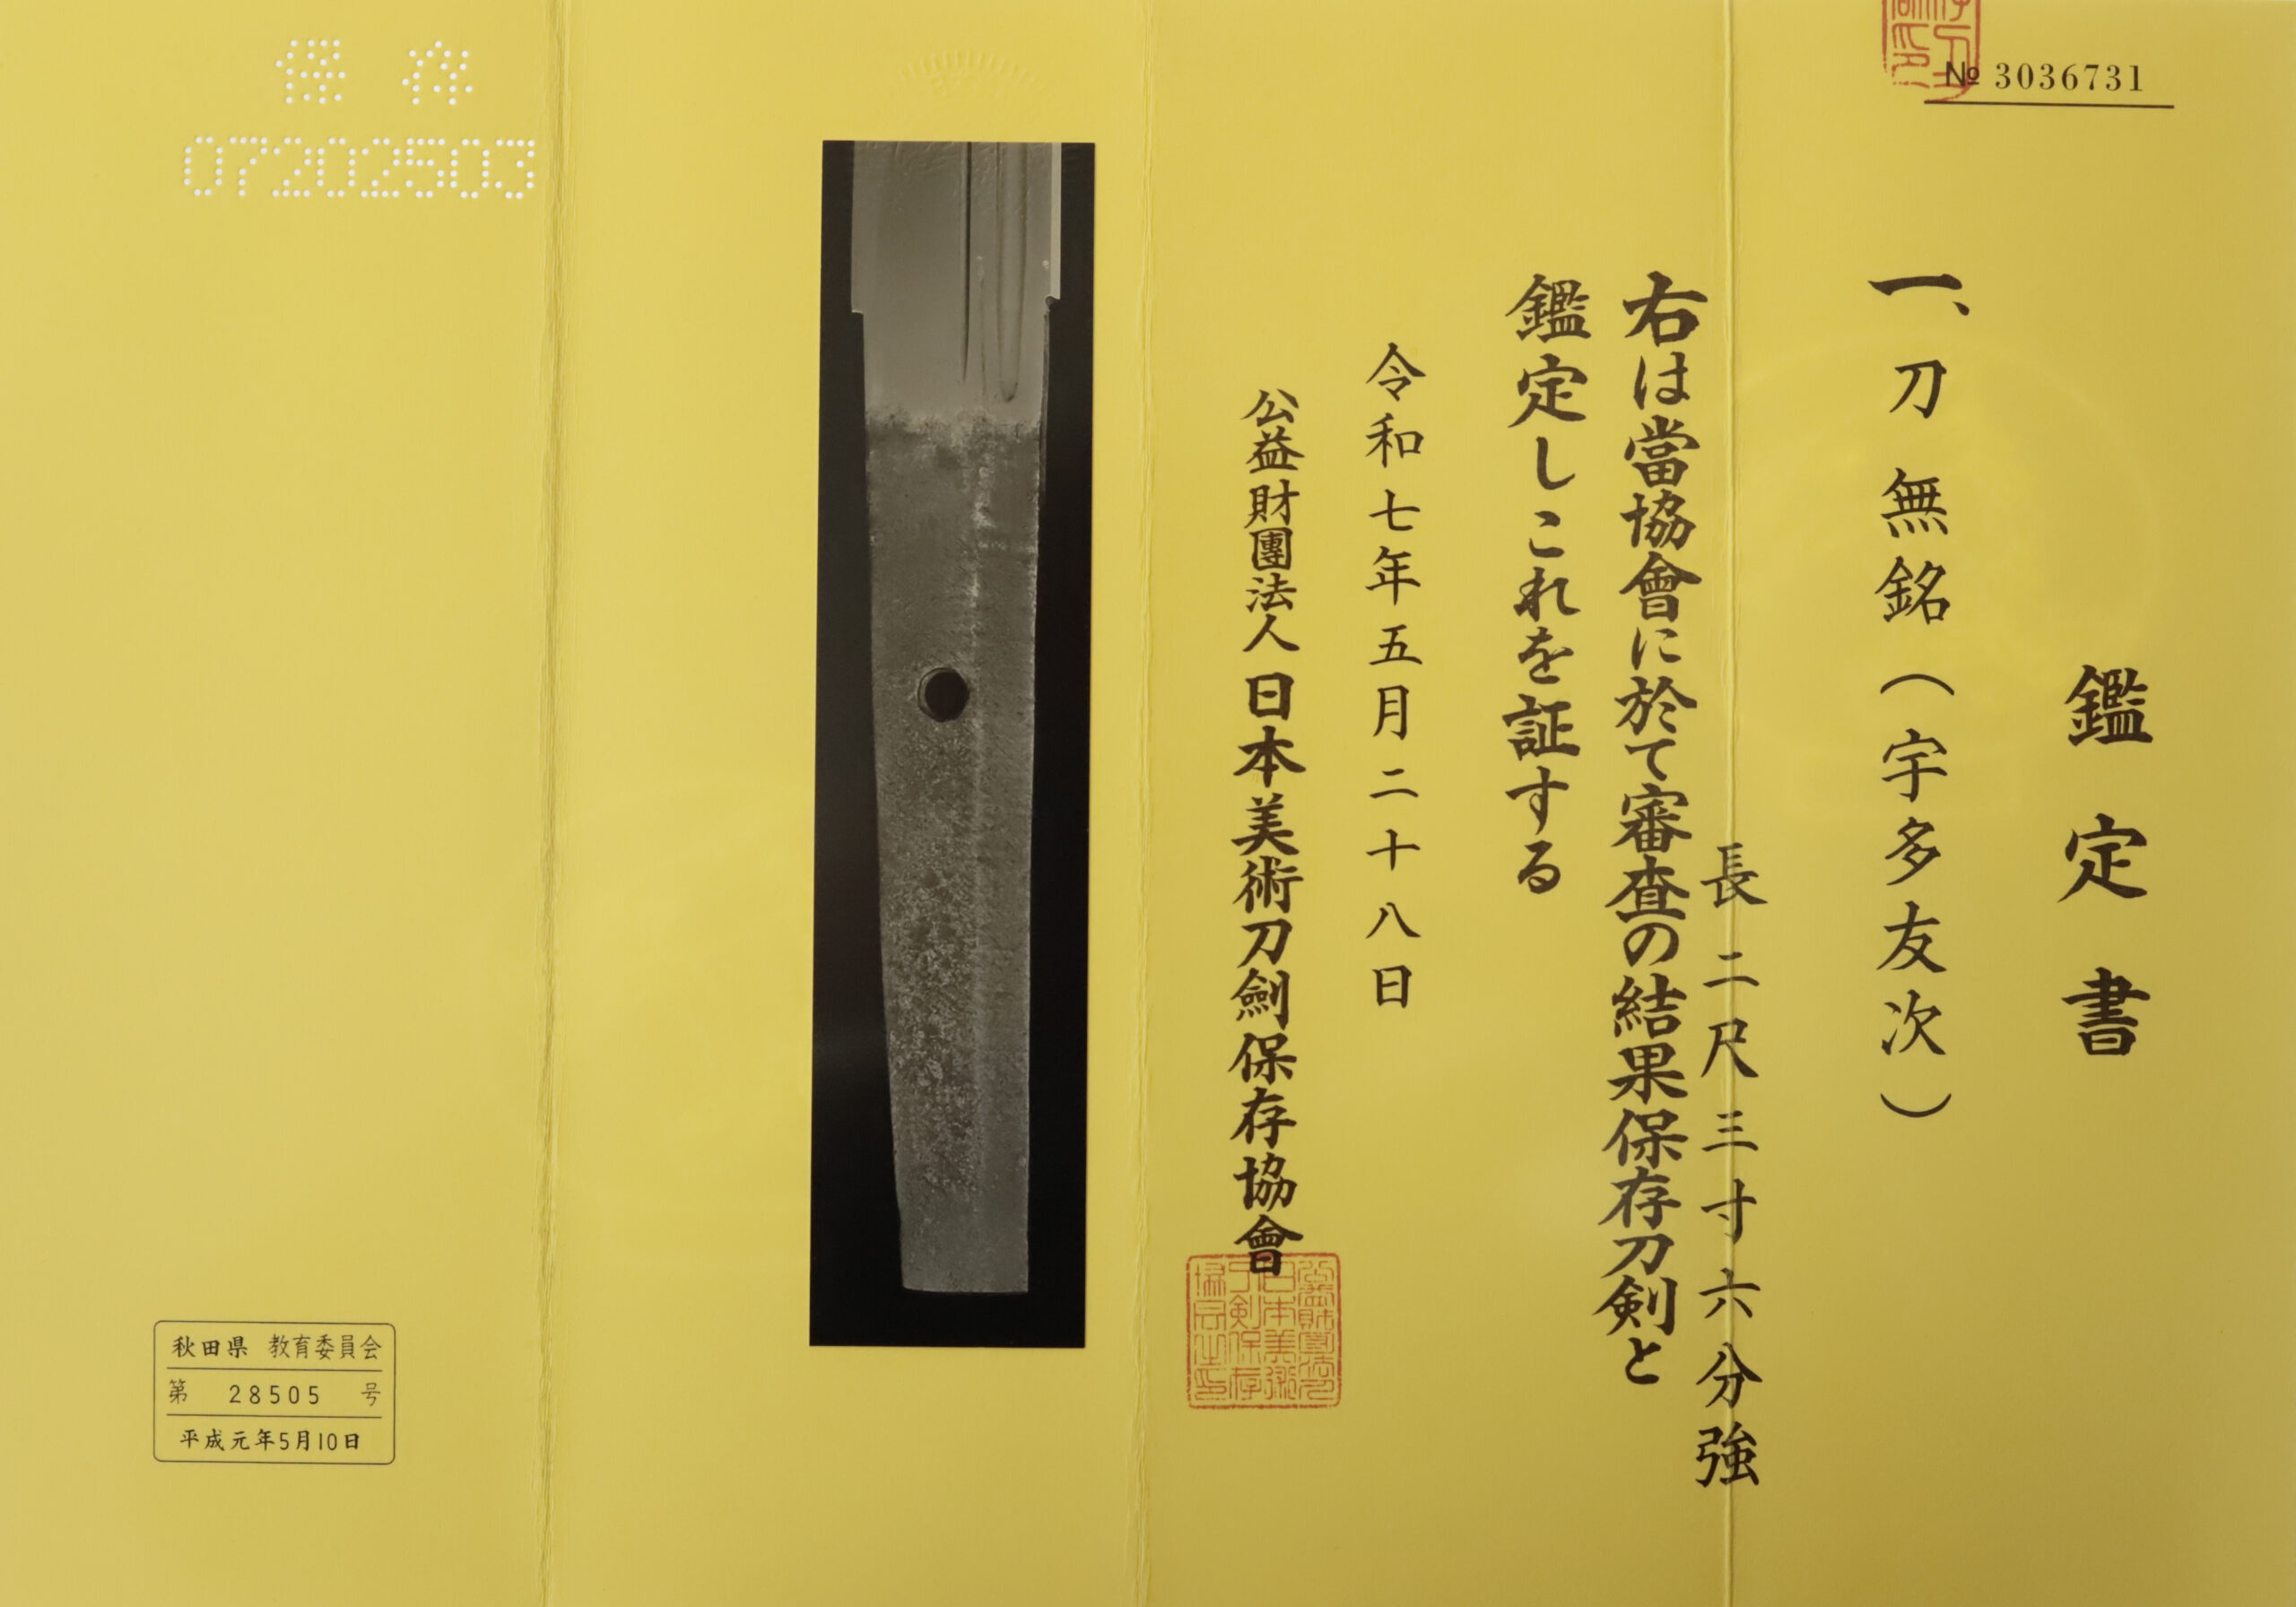 № 3036731
鑑定書
一、刀 無銘（宇多友次）
長 二尺三寸六分強
右は當協會に於て審査の結果保存刀剣と
鑑定しこれを証する
令和七年五月二十八日
公益財團法人 日本美術刀劍保存協會
保存
07202503
秋田県 教育委員会
第 28505 号
平成元年5月10日